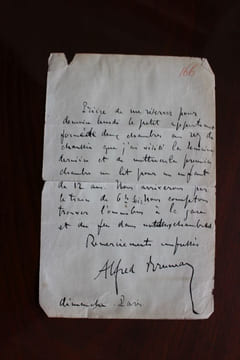 166
Prière de me réserver pour
demain lundi le petit appartement
formé de deux chambres au rez de
chaussée que j'ai visité la semaine
dernière et de mettre dans la première
chambre un lit pour un enfant
de 12 ans. Nous arriverons par
le train de 6h. Nous comptons
trouver l'omnibus à la gare
et du feu dans chambres
Remerciements empressés
Alfred
dimanche